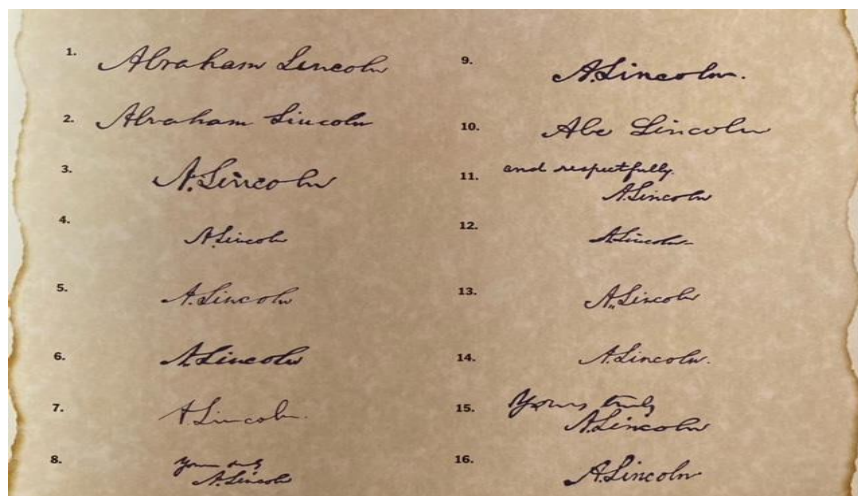 1. Abraham Lincoln
2. Abraham Lincoln
3. A. Lincoln
4. A. Lincoln
5. A. Lincoln
6. A. Lincoln
7. A Lincoln.
8. Yours truly
A. Lincoln
9. A. Lincoln.
10. Abe Lincoln
11. and respectfully.
A. Lincoln
12. A. Lincoln
13. A. Lincoln
14. A. Lincoln.
15. Yours truly
A. Lincoln
16. A. Lincoln